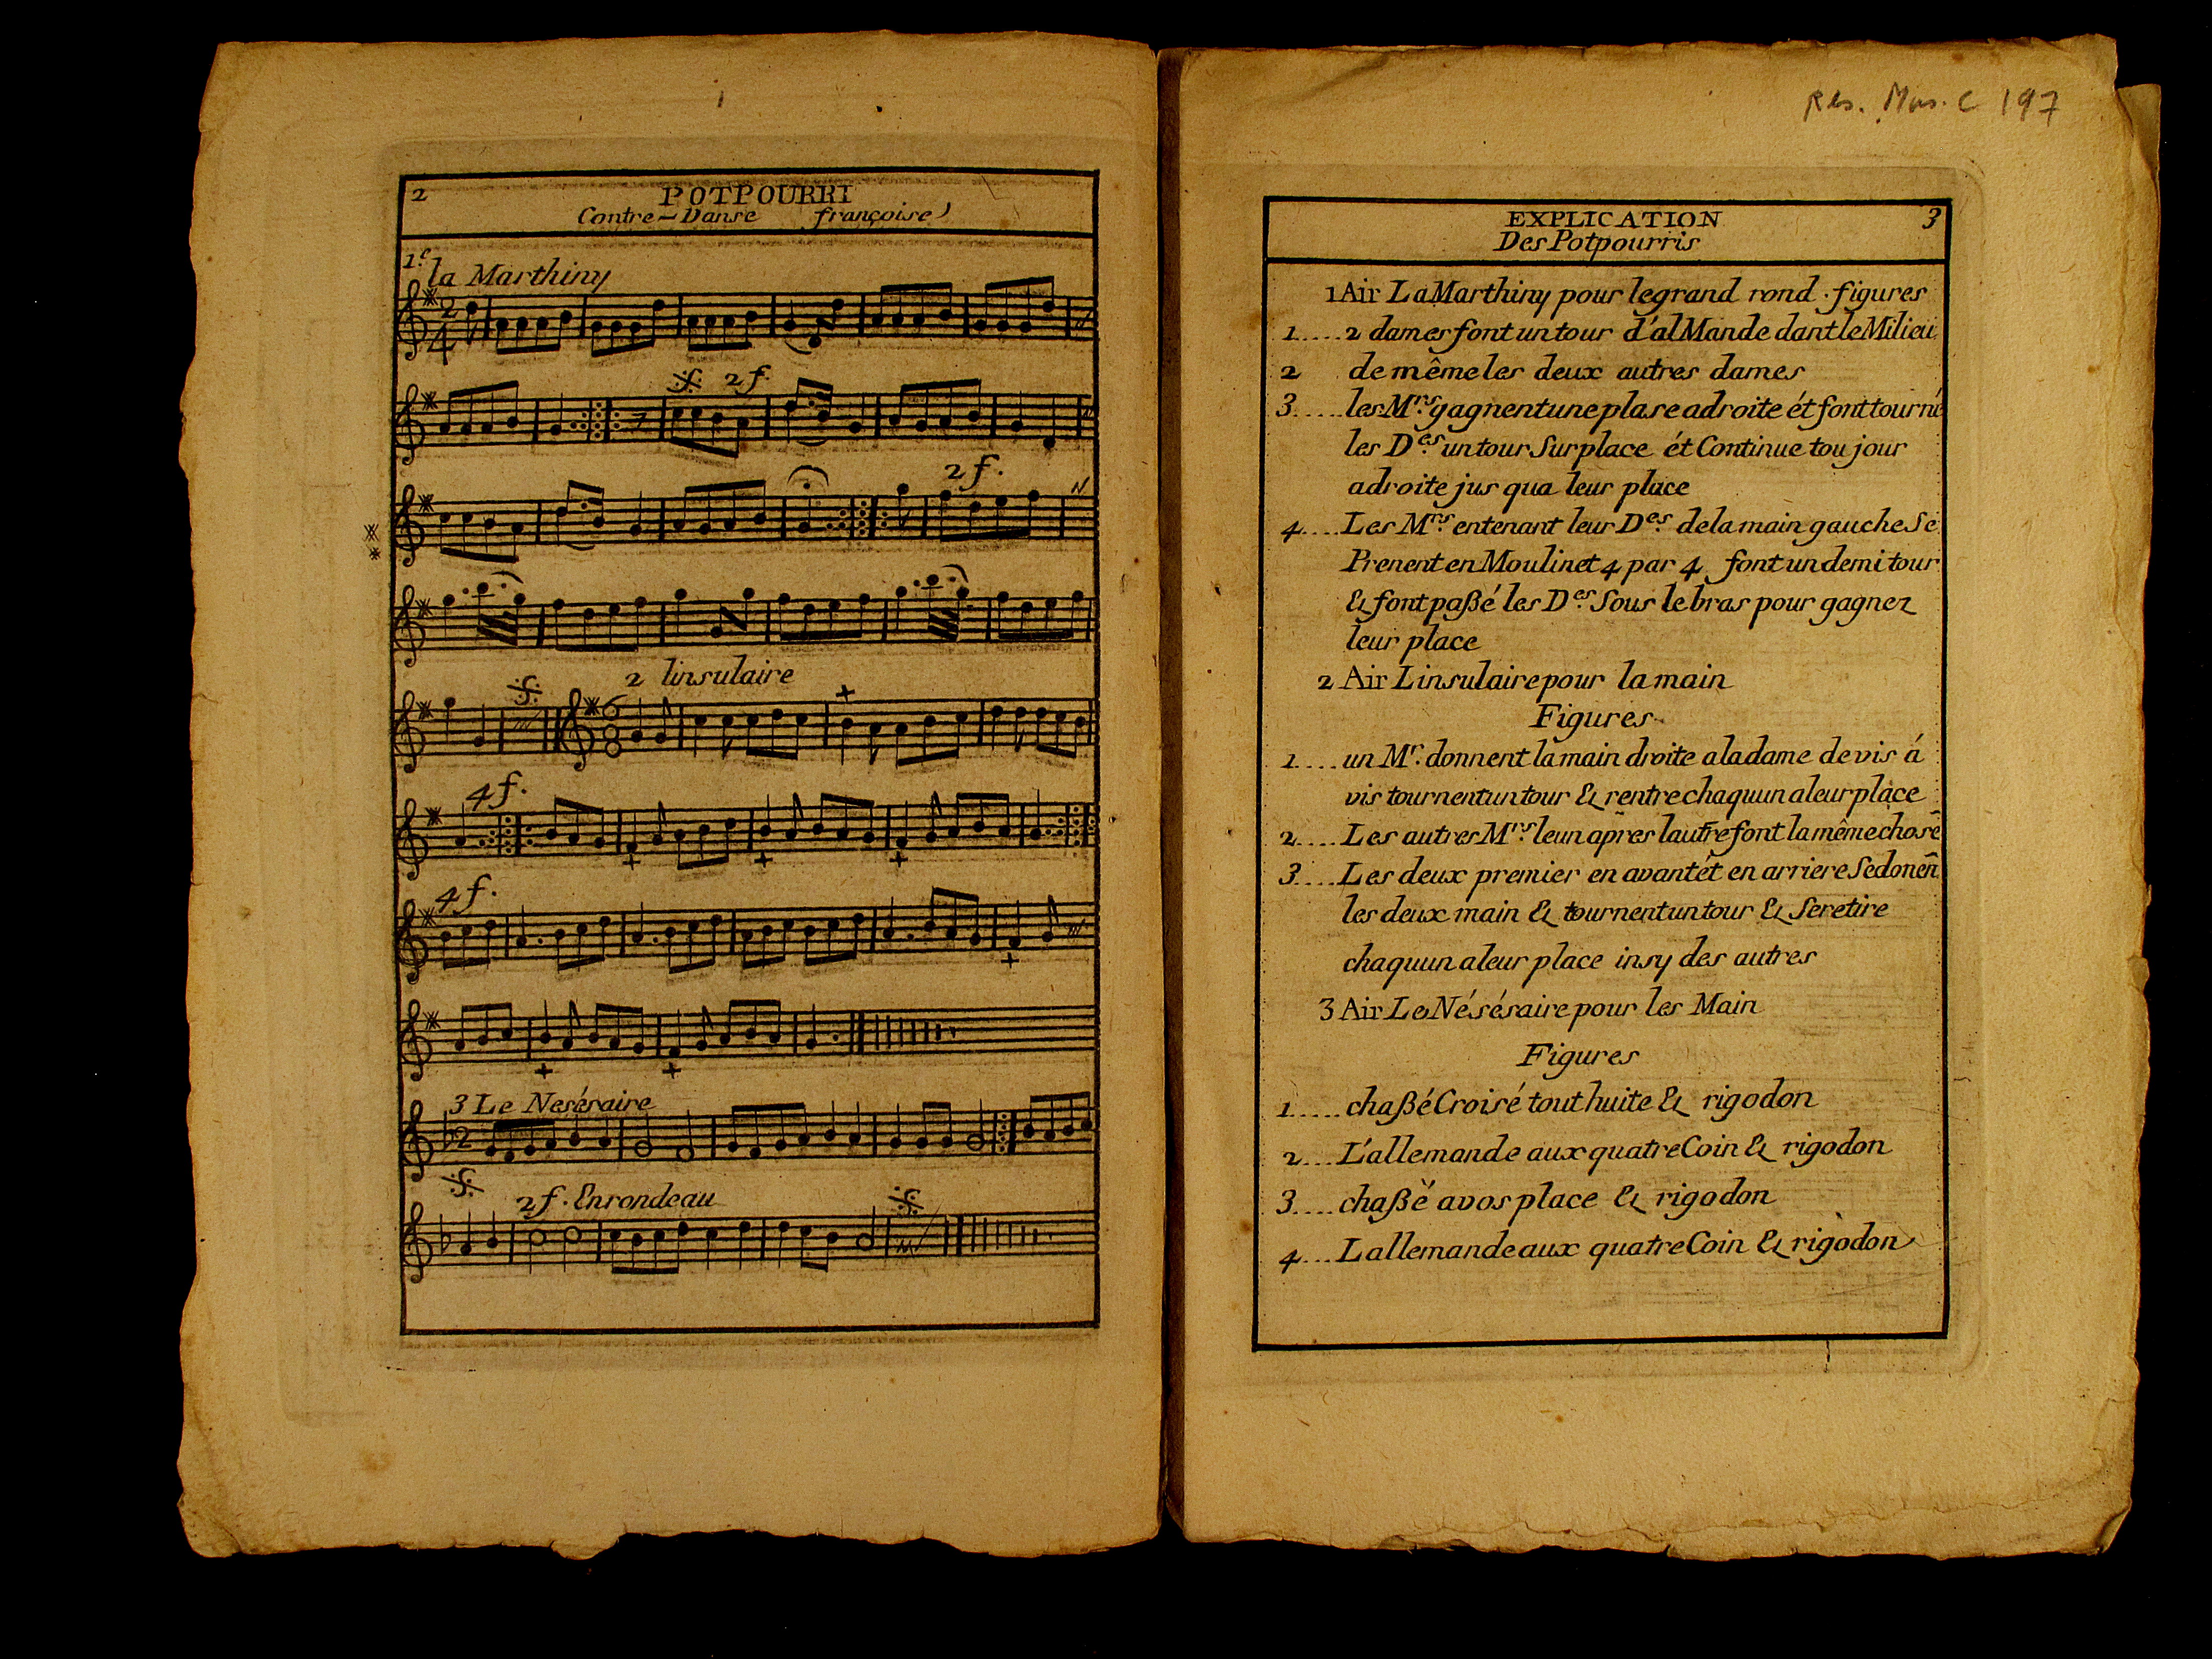 2
POTPOURRI
Contre-Danse françoise
1.e la Marthiny
2 f.
2 f.
2 linsulaire
4 f.
4 f.
3 Le Nesésraire
2 f. Enrondeau
Res. Mus. C 197
EXPLICATION 3
Des Potpourris
1 Air La Marthiny pour le grand rond . figures
1..... 2 dames font un tour d'al Mande dant le Milieu
2 de même les deux autres dames
3..... les M.rs gagnent une plase adroite ét font tourné
les D.es un tour Sur place ét Continue tou jour
adroite jus qua leur place
4.... Les M.rs entenant leur D.es de la main gauche Se
Prenent en Moulinet 4 par 4 font un demi tour
& font paßé les D.es Sous le bras pour gagnez
leur place
2 Air Linsulaire pour la main
Figures
1.... un M.r donnent la main droite a la dame de vis á
vis tournent un tour & rentre chaquun a leur place
2.... Les autres M.rs leun apres lautre font la même chose
3.... Les deux premier en avant ét en arriere Se donen
les deux main & tournent un tour & Se retire
chaquun a leur place insy des autres
3 Air Le Nésésraire pour les Main
Figures
1..... chaßé Croisé tout huite & rigodon
2.... L'allemande aux quatre Coin & rigodon
3.... chaßé a vos place & rigodon
4... Lallemande aux quatre Coin & rigodon